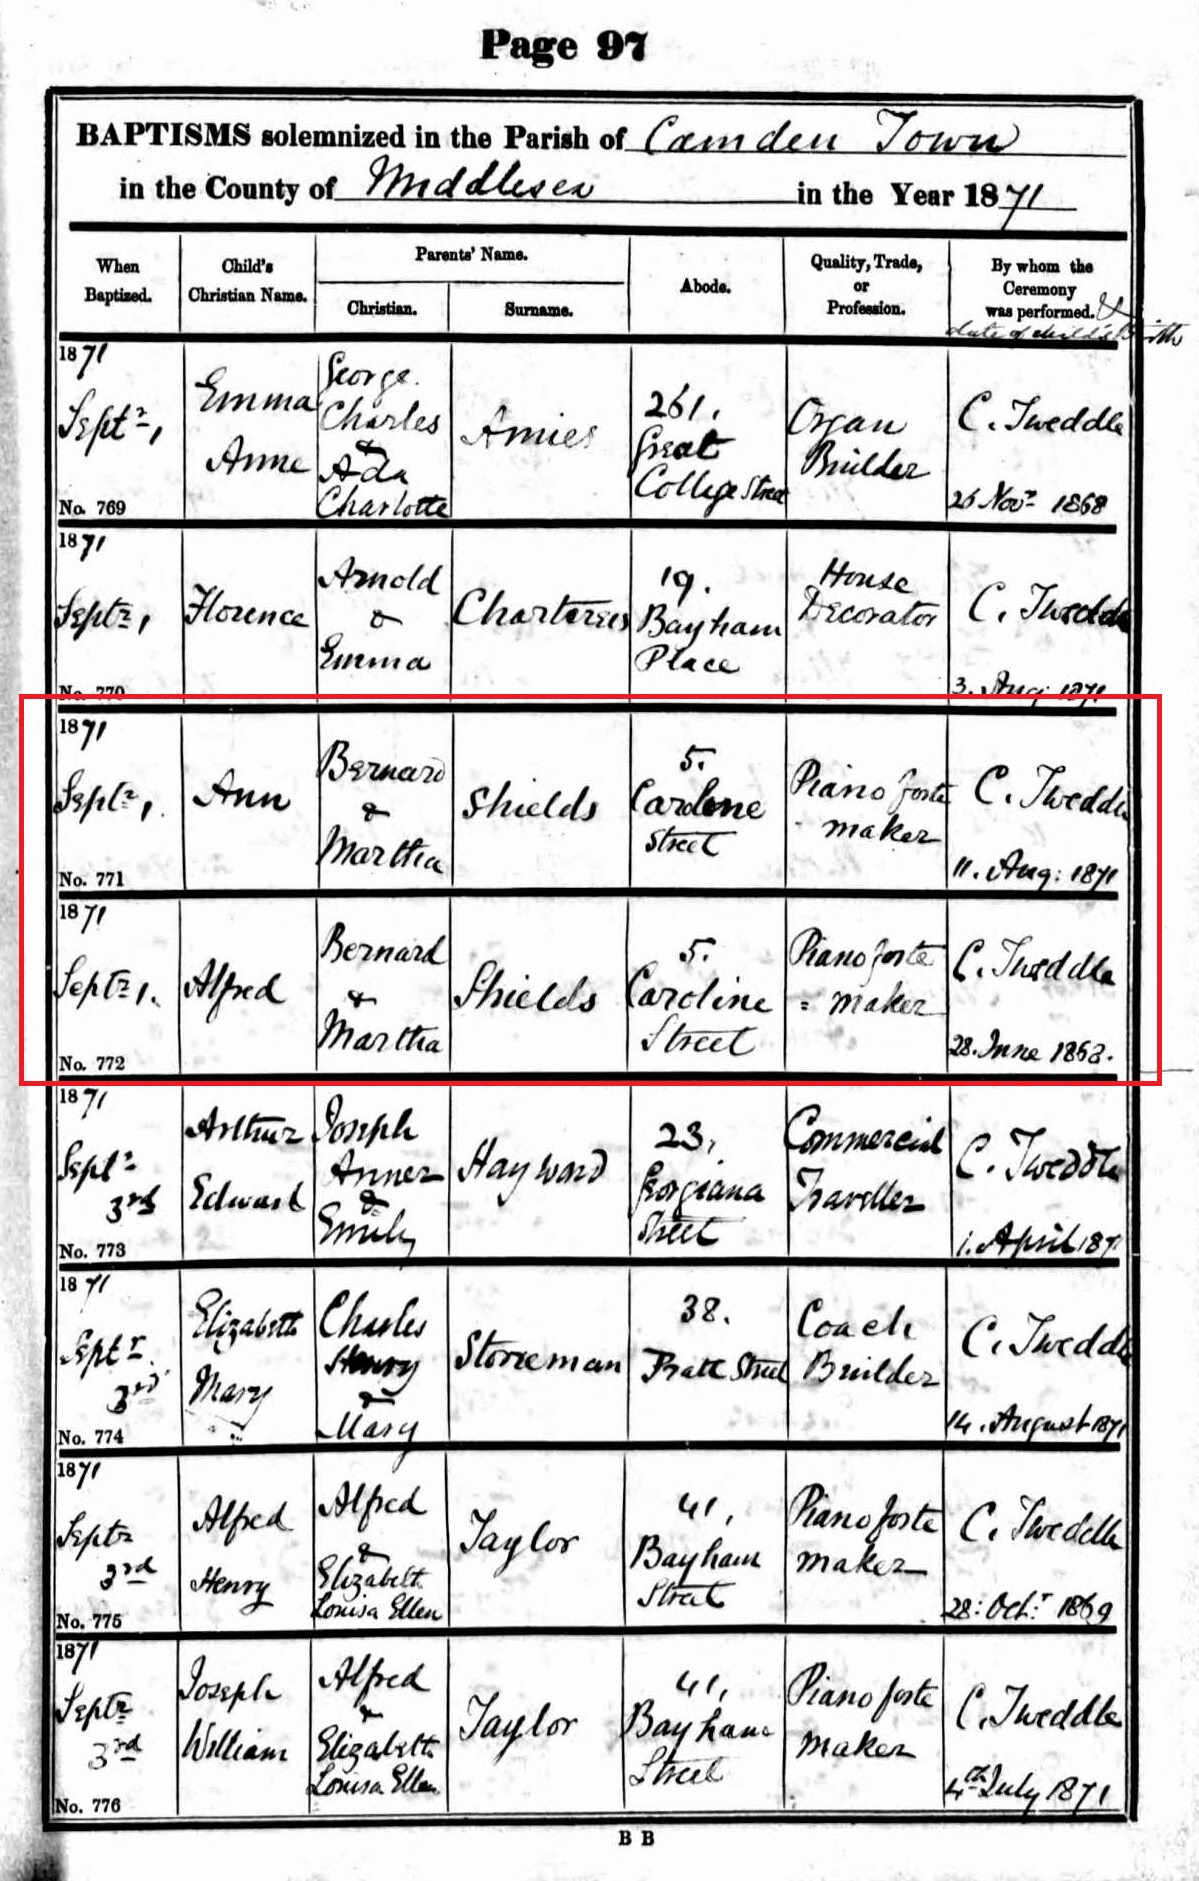 Page 97
BAPTISMS solemnized in the Parish of Camden Town
in the County of Middlesex in the Year 1871
When Baptized.
Child's Christian Name.
Parents' Name.
Christian.
Surname.
Abode.
Quality, Trade, or Profession.
By whom the Ceremony was performed. &
date of child's Birth
1871
Septr 1,
No. 769
Emma
Anne
George
Charles
&
Ada
Charlotte
Amies
261.
Great
College Street
Organ
Builder
C. Tweddle
26 Novr 1868
1871
Septr 1,
No. 770
Florence
Arnold
&
Emma
Charteris
19.
Bayham
Place
House
Decorator
C. Tweddle
3. Aug: 1871
1871
Septr 1.
No. 771
Ann
Bernard
&
Martha
Shields
5.
Caroline
Street
Piano forte
maker
C. Tweddle
11. Aug: 1871
1871
Septr 1.
No. 772
Alfred
Bernard
&
Martha
Shields
5.
Caroline
Street
Piano forte
= maker
C. Tweddle
28. June 1868.
1871
Septr
3rd
No. 773
Arthur
Edward
Joseph
Anner
&
Emily
Hayward
23,
Georgiana
Street
Commercial
Traveller
C. Tweddle
1. April 1871
1871
Septr
3rd
No. 774
Elizabeth
Mary
Charles
Henry
&
Mary
Stoneman
38.
Pratt Street
Coach
Builder
C. Tweddle
14. August 1871
1871
Septr
3rd
No. 775
Alfred
Henry
Alfred
&
Elizabeth
Louisa Ellen
Taylor
41,
Bayham
Street
Piano forte
maker
C. Tweddle
28: Octr 1869
1871
Septr
3rd
No. 776
Joseph
William
Alfred
&
Elizabeth
Louisa Ellen
Taylor
41,
Bayham
Street
Piano forte
maker
C. Tweddle
4th July 1871
B B